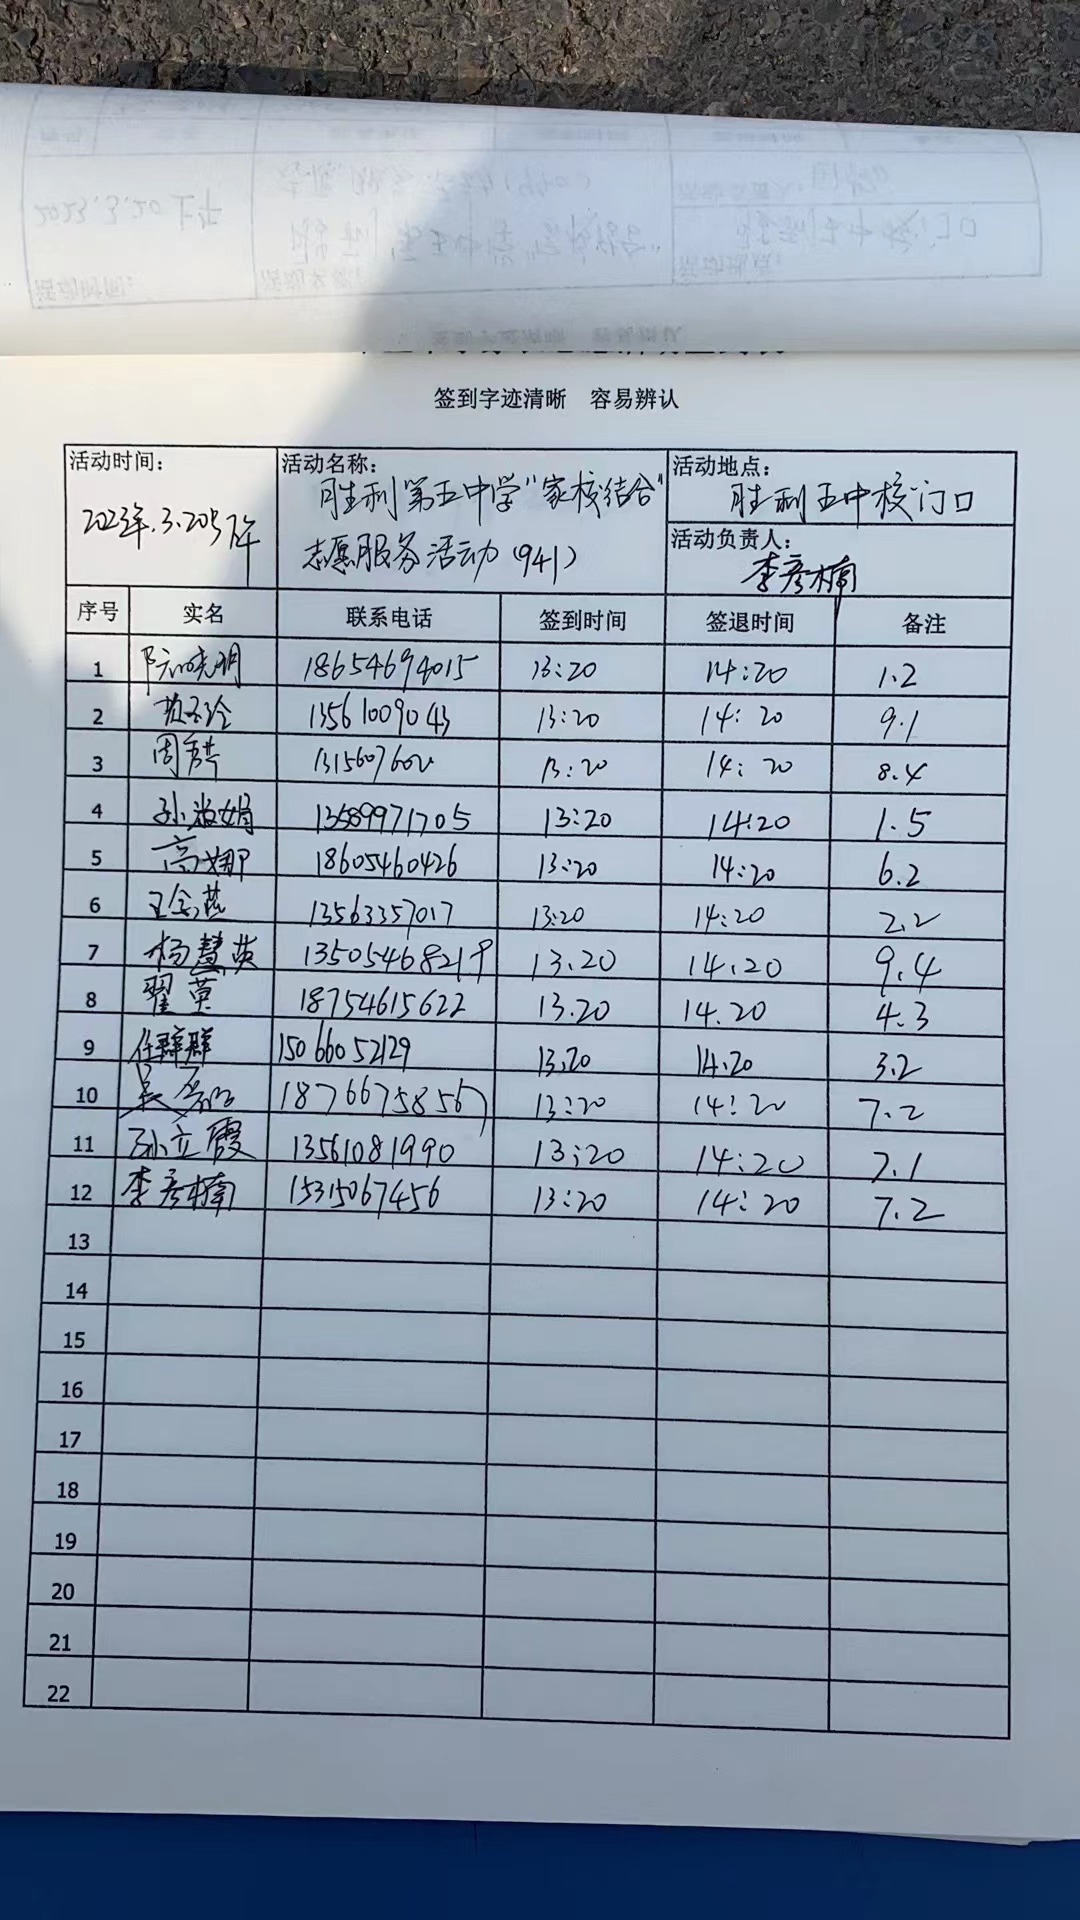 签到字迹清晰 容易辨认
活动时间：
2023年.3.20号下午
活动名称：
胜利第五中学"家校结合"
志愿服务活动（941）
活动地点：
胜利五中校门口
活动负责人：
李彦楠
序号 实名 联系电话 签到时间 签退时间 备注
1 18654694015 13:20 14:20 1.2
2 13561009043 13:20 14:20 9.1
3 13:20 14:20 8.4
4 孙淑娟 13589971705 13:20 14:20 1.5
5 高娜 18605460426 13:20 14:20 6.2
6 13563357017 13:20 14:20 2.2
7 杨慧英 13505468219 13.20 14.20 9.4
8 翟英 18754615622 13.20 14.20 4.3
9 任群群 15066052129 13:20 14.20 3.2
10 18766758567 13:20 14:20 7.2
11 孙立霞 13561081990 13:20 14:20 7.1
12 李彦楠 15315067456 13:20 14:20 7.2
13
14
15
16
17
18
19
20
21
22